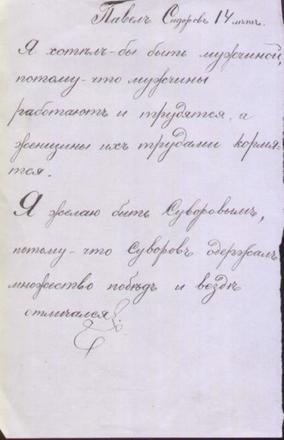 Павелъ Сидоровъ 14 лѣтъ.
Я хотѣлъ-бы быть мужчиной,
потому-что мужчины
работаютъ и трудятся, а
женщины ихъ трудами кормя
тся.
Я желаю быть Суворовымъ,
потому-что Суворовъ одержалъ
множество побѣдъ и вездѣ
отличался.